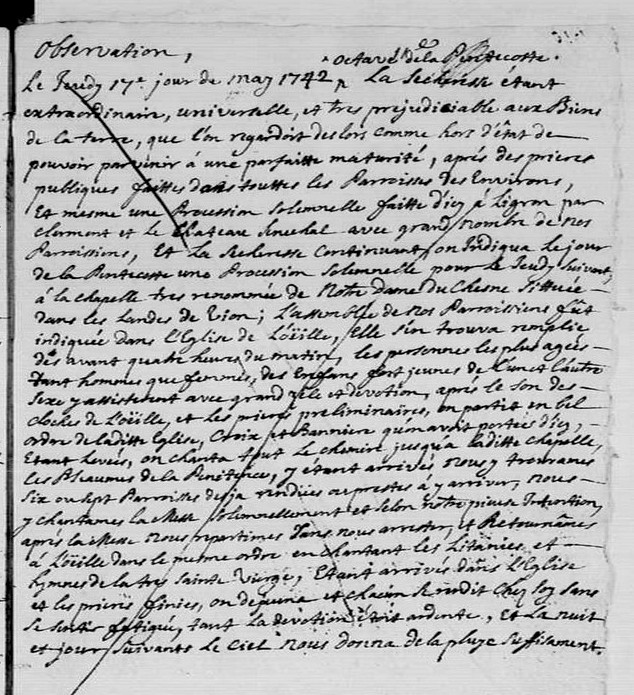 Observation,
^ octave de la Pentecoste.
Le Jeudy 17e jour de may 1742 ^ La Secheresse étant
extraordinaire, universelle, et tres prejudiciable aux Biens
de la terre, que l'on regardoit deslors comme hors d'état de
pouvoir parvenir à une parfaitte maturité, aprés des prieres
publiques faittes dans touttes les Parroisses des Environs,
Et mesme une Procession Solemnelle faitte d'icy à Ligron par
Clermont et le Chateau Senechal avec grand nombre de nos
Parroissiens, Et La Secheresse Continuant, on Indiqua Le jour
de la Pentecoste une Procession Solemnelle pour le Jeudy Suivant,
à la chapelle tres renommée de Notre dame du Chesne Sittuée
dans les Landes de Vion ; L'assemblée de nos Parroissiens fût
indiquée dans L'Eglise de L'oüille, Elle s'en trouva remplie
dés avant quatre heures du matin, les personnes les plus agées
Tant hommes que femmes, des Enfans fort jeunes de l'un et l'autre
Sexe y assisterent avec grand zéle et devotion, aprés le Son des
Cloches de L'oüille, et les prieres preliminaires, on partit en bel
ordre de laditte Eglise, Croix et Banniere qu'on avoit portées d'icy,
Etant Levés, on chanta tout Le chemin jusqu'a laditte chapelle,
Les Pseaumes de la Penitence, y étant arrivés nous y trouvames
Six ou Sept Parroisses desja rendües ou prestes à y arriver, nous
y chantames la Messe Solemnellement et Selon notre pieuse Intention,
aprés la Messe nous repartimes Sans nous arrester, et Retournâmes
à L'oüille dans le mesme ordre en chantant les Litanies, et
hymnes de la tres Sainte Vierge, Etant arrivés dans L'Eglise
et les prieres finies, on dejeuna et chacun Se rendit chez Soy Sans
Se Sentir fatigué, tant La devotion étoit ardente, et La nuit
et jour Suivants le Ciel nous donna de la pluye Suffisament.